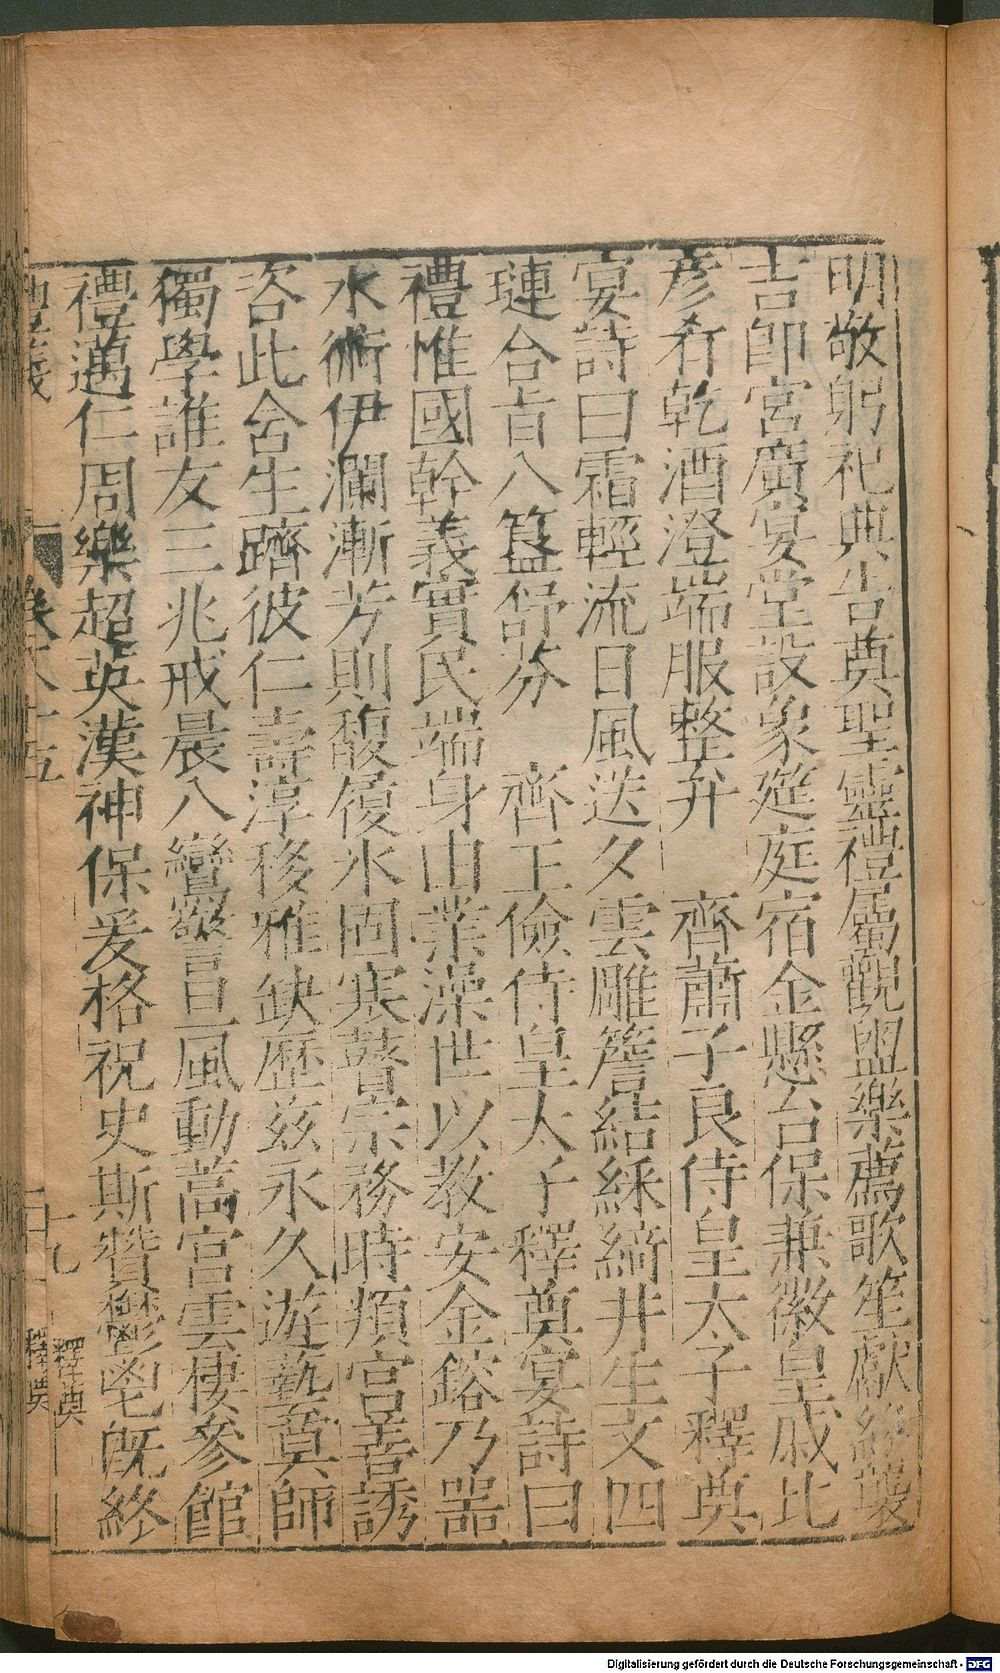 明敬躬祀典告奠聖靈禮屬觀盥樂薦歌笙獻終襲
吉卽宮廣宴堂設象筵庭宿金懸台保兼徽皇戚比
彦肴乾酒澄端服整弁 齊蕭子良侍皇太子釋奠
宴詩曰霜輕流日風送夕雲雕簷結綵綺井生文四
璉合旨八簋舒芬 齊王儉侍皇太子釋奠宴詩曰
禮惟國幹義實民端身由業澡世以教安金鎔乃器
水術伊瀾漸芳則馥履氷固寒瞽宗務時頖宮善誘
咨此含生躋彼仁壽淳移雅缺歷玆永久遊藝奠師
獨學誰友三兆戒晨八鸞警旦風動蒿宮雲棲參館
禮邁仁周樂超英漢神保爰格祝史斯贊鬱鬯旣終
卷 十五
十九
釋奠
釋奠
Digitalisierung gefördert durch die Deutsche Forschungsgemeinschaft - DFG